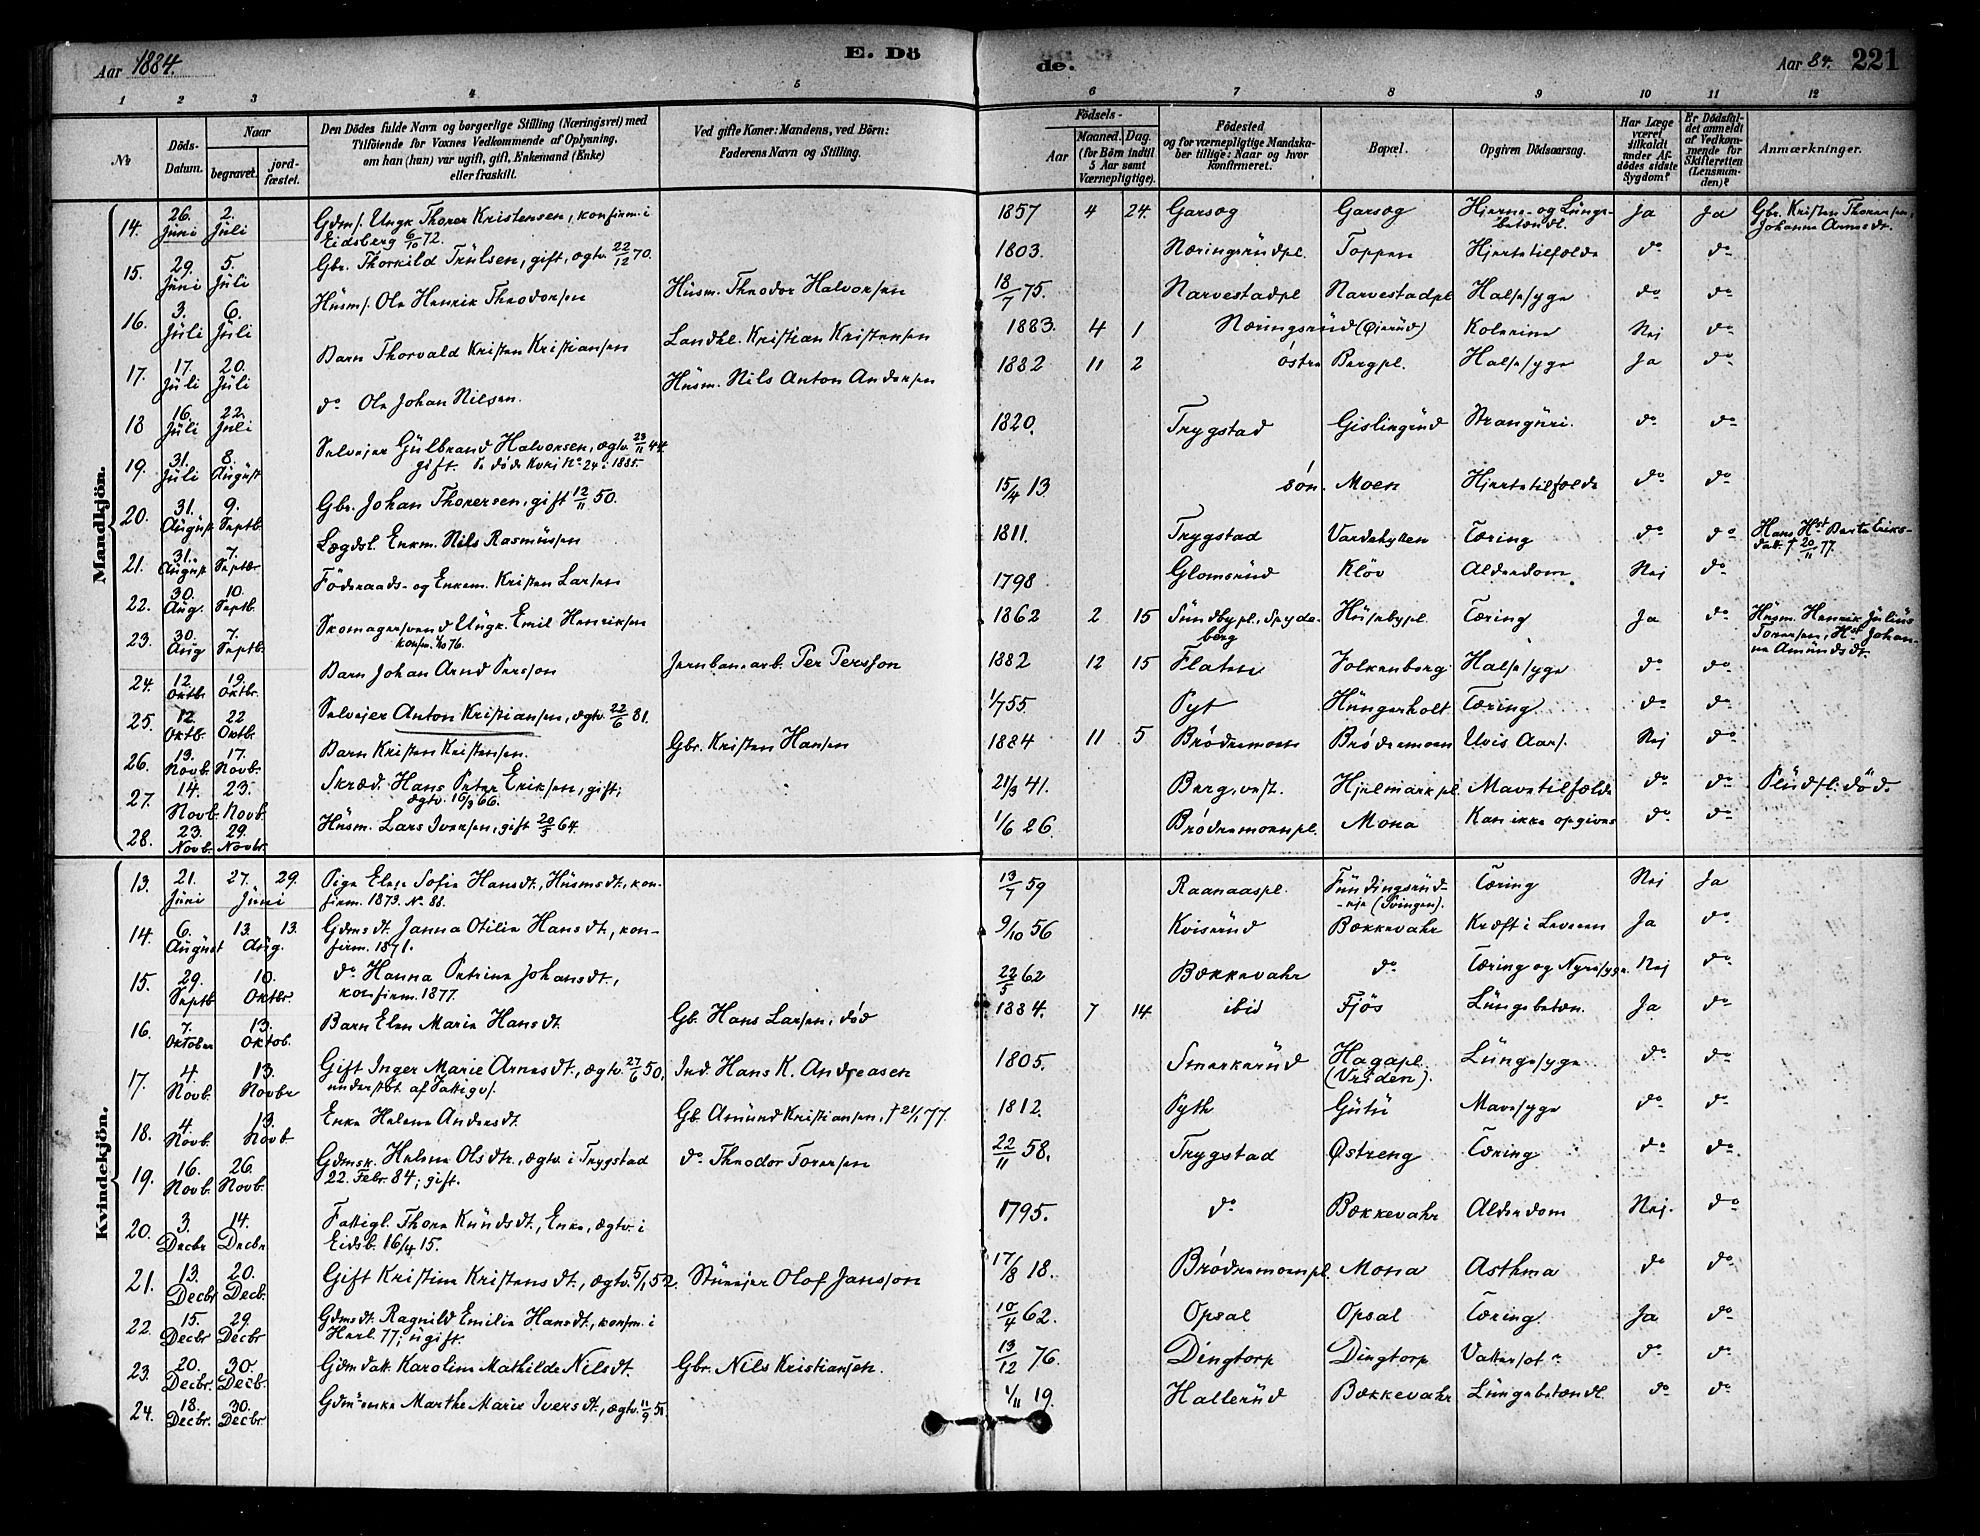 Aar 1884. E. Dö
de. Aar 84. 221
1 2 3 4 5 6 7 8 9 10 11 12
No
Döds-Datum.
Naar
begravet.
jord-fæstet.
Den Dödes fulde Navn og borgerlige Stilling (Næringsvei) med
Tilföiende for Voxnes Vedkommende af Oplysning,
om han (hun) var ugift, gift, Enkemand (Enke)
eller fraskilt.
Ved gifte Koner: Mandens, ved Börn:
Faderens Navn og Stilling.
Födsels-
Aar
Maaned. Dag.
(for Börn indtil
5 Aar samt
Værnepligtige).
Födested
og for værnepligtige Mandska-
ber tillige: Naar og hvor
konfirmeret.
Bopæl.
Opgiven Dödsaarsag.
Har Læge
været
tilkaldt
under Af-
dödes sidste
Sygdom?
Er Dödsfal-
det anmeldt
af Vedkom-
mende for
Skifteretten
(Lensman-
den)?
Anmærkninger.
Mandkjön.
14. 26. Juni 2. Juli Gdms. Ungk. Thorer Kristensen, konfirm. i Eidsberg 6/10 72. 1857 4 24. Garsog Garsog Hjerne- og Lunge-betændl. Ja Ja Gbr. Kristen Thoresen, Johanne Arnesdt.
15. 29. Juni 5. Juli Gbr. Thorkild Trulsen, gift, ægtv. 22/12 70. 1803. Næringsrudpl. Toppen Hjertetilfælde do do
16. 3. Juli 6. Juli Husms. Ole Henrik Theodorsen Husm. Theodor Halvorsen 18/7 75. Narvestadpl Narvestadpl Halssyge do do
17. 17. Juli 20. Juli Barn Thorvald Kristen Kristiansen Landhl. Kristian Kristensen 1883. 4 1 Næringsrud (Øierud) Kolerine Nej do
18 16. Juli 22. Juli do Ole Johan Nilsen. Husm. Nils Anton Andersen 1882 11 2 östre Bergpl. Halssyge Ja do
19. 31. Juli 8. August Selvejer Gulbrand Halvorsen, ægtv. 23/11 44. gift. Se døde Kvkj No 24. 1885. 1820. Trygstad Gislingrud Stranguri. do do
20. 31. August 9. Septb. Gbr. Johan Thorersen, gift 12/11 50. 15/4 13 søn. Moen Hjertetilfælde do do
21. 31. August 7. Septbr Lægdsl. Enkm. Nils Rasmussen 1811. Trygstad Vardehytten Tæring do do Hans Hst Berte Eriks-datt. † 20/10 77.
22. 30. Aug. 10. Septb. Föderaads- og Enkem. Kristen Larsen 1798 Glomsrud Kløv Alderdom. Nej do
23. 30. Aug 7. Septb. Skomagersvend Ungk. Emil Henriksen konfm. 1/10 76. 1862 2 15 Sundbypl. Spyde-berg Husebypl. Tæring Ja do Husm. Henrik Julius Torersen, Hst Johan-ne Amundsdt.
24. 12. Oktbr 19. Oktbr. Barn Johan Arnd Persson Jernbanearb. Per Persson 1882 12 15 Flaten Volkenborg Halssyge do do
25. 12. Oktb. 22 Oktb. Selvejer Anton Kristiansen, ægtv. 22/6 81. 1/7 55 Pyt Hungerholt Tæring. do do
26. 13. Novb. 17. Novb. Barn Kristen Kristensen. Gbr. Kristen Hansen 1884 11 5 Brødremoen Brødremoen Uvis Aars. Nej do
27. 14. Novb. 23. Novb. Skræd. Hans Peter Eriksen, gift; ægtv. 16/3 66. 21/9 41. Berg, vest. Hjelmark pl. Mavetilfælde do do Pludsl. død.
28. 23. Novb. 29. Novbr. Husm. Lars Iversen, gift 20/5 64. 1/6 26 Brødremoenpl. Mona Kan ikke opgives do do
Kvindekjön.
13. 21. Juni 27. 29. Juni Pige Elen Sofie Hansdt., Husmsdt., kon-firm. 1873. No 88. 13/1 59 Raanaaspl. Fundingsrud-eje (Svingen). Tæring Nej Ja
14. 6. August 13. 13. Aug. Gdmsdt. Janna Otilie Hansdt., kon-firm. 1871. 9/10 56 Kviserud Bækkevahr Kræft i Leveren Ja do
15. 29. Septb 10. Oktbr. do Hanna Petrine Johansdt., konfirm. 1877. 22/5 62 Bækkevahr do Tæring og Nyresyge Nej do
16. 7. Oktober 13. Oktob. Barn Elen Marie Hansdt. Gb. Hans Larsen, død 1884. 7 14. ibid Fjös Lungebetæn. Ja do
17. 4. Novb. 13. Novbr Gift Inger Marie Arnesdt., ægtv. 27/6 50, understøt. af Fattigv. Ind. Hans K. Andreasen 1805. Smerkerud Hagapl. (Vriden). Lungesyge do do
18. 4. Novb. 13. Novb Enke Helene Andersdt. Gb. Amund Kristiansen, † 21/1 77. 1812. Pyth Gutu Mavesyge do do
19. 16. Novb. 26. Novb. Gdmsk. Helene Olsdtr., ægtv. i Trygstad 22. Febr. 84; gift. do Theodor Toresen 22/11 58. Trygstad Østreng Tæring do do
20. 3. Decbr 14. Decbr Fattigl. Thore Knudsdt., Enke, ægtv. i Eidsb. 16/4 15. 1795. do Bækkevahr Alderdom Nej. do
21. 13. Decbr 20. Decb. Gift Kristine Kristensdt., ægtv. 5/1 52. Stuveejer Olof Jansson 17/8 18. Brødremoenpl. Mona Asthma do do
22. 15. Decbr 29. Decbr Gdmsdt. Ragnild Emilie Hansdt., konfm. i Herl. 77; ugift. 10/4 62. Opsal Opsal Tæring. Ja do
23. 20. Decbr. 30. Decb. Gdmdatt. Karoline Mathilde Nilsdt. Gbr. Nils Kristiansen. 13/12 76. Dingtorp Dingtorp Vattersot. do do
24. 18. Decbr. 30. Decbr. Gdm enke Marthe Marie Iversdt., ægtv. 11/9 51. 1/11 19. Hallerud Bækkevahr Lungebetændl. do do